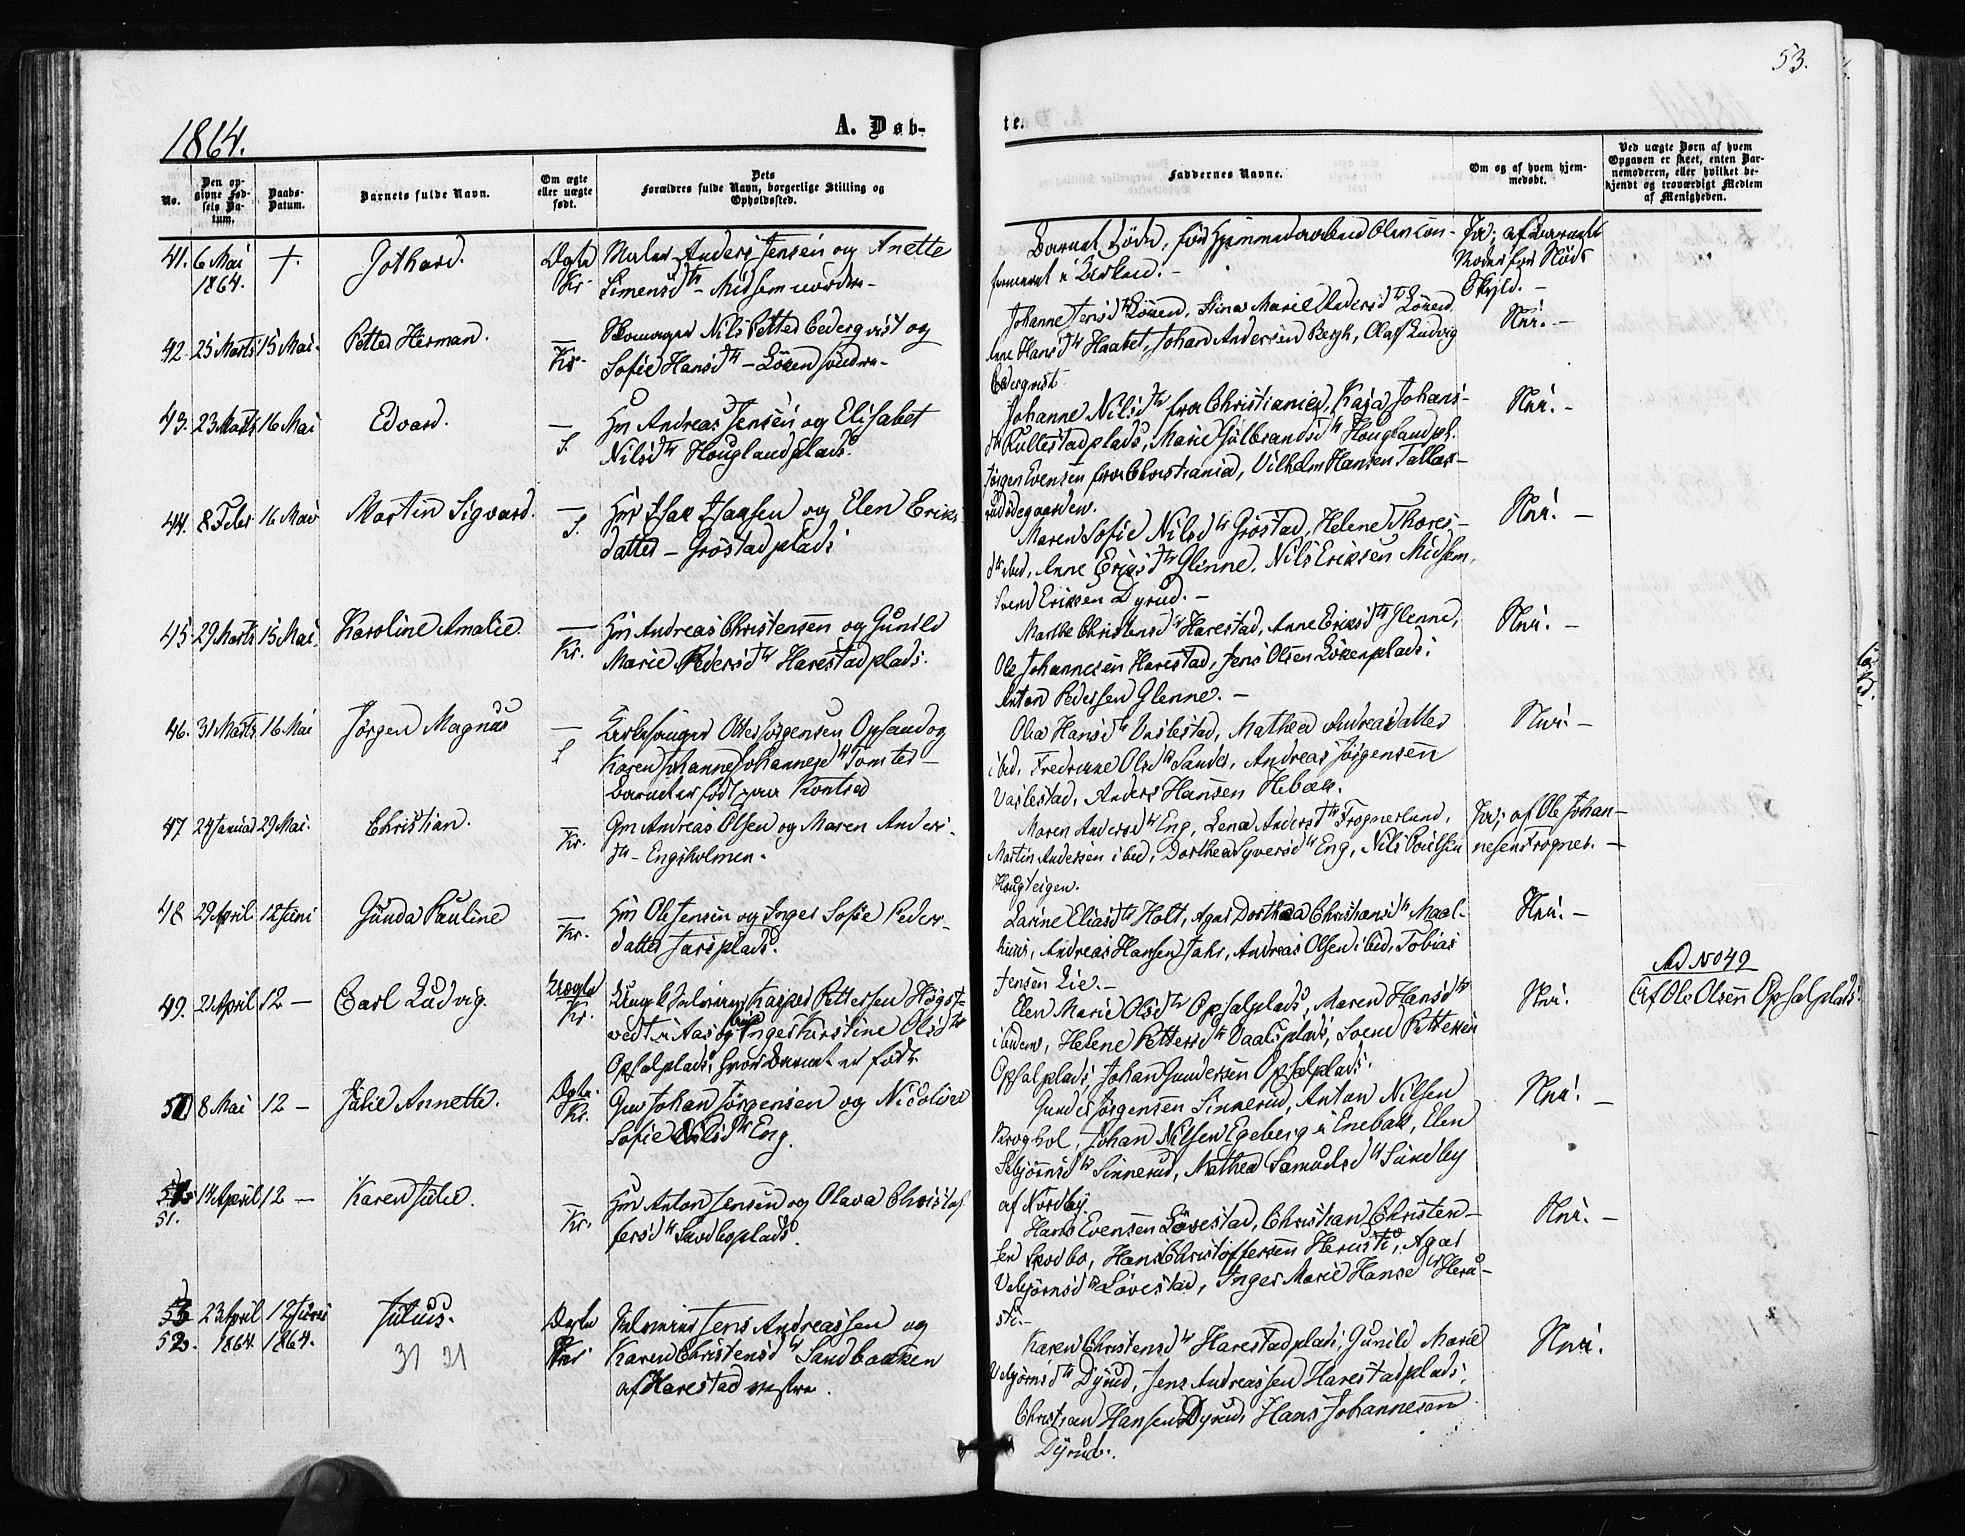 53.
1864.
A. Døb-
te.
No.
Den op-
givne Fød-
sels Da-
tum.
Daabs-
Datum.
Barnets fulde Navn.
Om ægte
eller uægte
født.
Dets
Forældres fulde Navn, borgerlige Stilling og
Opholdssted.
Faddernes Navne.
Om og af hvem hjem-
medøbt.
Ved uægte Børn af hvem
Opgaven er skeet, enten Bar-
nemoderen, eller hvilket be-
kjendt og troværdigt Medlem
af Menigheden.
41. 6 Mai
1864.
+.
Gothard.
Ægte
Kr.
Maler Anders Jensen og Anette
Simensdtr – Midsem nordre –
Barnet døde, før
i Kirken. –
Ja; af Barnets
Moder for Nøds
Skyld. –
42. 25 Marts 15 Mai.
Petter Herman.
—
Kr.
Skomager Nils Petter Cederqvist og
Sofie Hansdtr – Löken söndre –
Johanne Jensdtr Löken, Stina Marie Andersdtr Löken
Anne Hansdtr Haabet, Johan Andersen Bergh, Olaf Ludvig
Cederqvist.
Nei. –
43. 23 Marts 16 Mai
Edvard.
—
S.
Hm Andreas Jensen og Elisabet
Nilsdtr Houglandplads.
Johanne Nilsdtr fra Christiania, Kaja Johans-
dtr Kultestadplads, Marie Gulbrandsdtr Houglandpl.
Jörgen Evensen fra Christiania, Vilhelm Hansen
Nei. –
44. 8 Febr 16 Mai
Martin Sigvard.
—
S.
Hm Isak Isaksen og Elen Eriks
datter – Gröstadplads
Maren Sofie Nilsdtr Gröstad, Helene Thores-
dtr ibid, Anne Eriksdtr Glenne, Nils Eriksen Midsem,
Svend Eriksen Dyrud. –
Nei. –
45. 29 Marts 15 Mai.
Karoline Amalie.
—
Kr.
Hm Andreas Christensen og Gunild
Marie Pedersdtr Harestadplads.
Marthe Christensdtr Harestad, Anne Eriksdtr Glenne,
Ole Johannesen Harestad, Jens Olsen Lökenplads,
Anton Pedersen Glenne. –
Nei. –
46. 31 Marts 16 Mai
Jörgen Magnus
—
S
Kirkesanger Otter Jörgensen Opsand og
Karen Johanne Johannesdtr Tomter –
Barnet er född paa Kontra
Olea Hansdtr Vaslestad, Mathea Andreasdatter
ibid, Fredrikke Olsdtr Sander, Andreas Jörgensen
Vaslestad, Anders Hansen Hebæk.
Nei. –
47 24 Januar 29 Mai.
Christian.
—
Kr.
Gm Andreas Olsen og Maren Anders-
dtr – Engsholmen.
Maren Andersdtr Eng, Lena Andersdtr Frognerlund,
Martin Andersen ibid, Dorthea Syversdtr Eng, Nils Poulsen
Hougteigen.
Ja; af Ole Johan-
nesen Frogner. –
48 29 April 12 Juni
Gunda Pauline
—
Kr.
Hm Ole Jensen og Inger Sofie Peders-
datter Jarsplads.
Larine Eliasdtr Holt, Agar Dorthea Christiansdtr Maal-
huus, Andreas Hansen Jahr, Andreas Olsen ibid, Tobias
Jensen Lie. –
Nei. –
49. 21 April 12 –
Carl Ludvig.
Uægte
Kr.
Ungk. Selveier Kasper Pettersen Högst-
vedt i Aas og Pige Inger Kirstine Olsdtr
Opsalplads, hvor Barnet er født.
Elen Marie Olsdtr Opsalplads, Maren Hansdtr
ibidem, Helene Pettersdtr Vaalsplads, Svend Pettersen
Opsalplads, Johan Gundersen Opsalplads.
Nei.
Ad No 49
Af Ole Olsen Opsalplads.
50 8 Mai 12 –
Julie Annette.
Ægte.
Kr.
Gm Johan Jörgensen og Nicoline
Sofie Nilsdtr Eng.
Gunder Jörgensen Sinnerud, Anton Nilsen
Kroghol, Johan Nilsen Egeberg i Enebak, Elen
Sinnerud, Mathea Samuelsdtr Sundby
af Nordby.
Nei. –
51. 14 April 12 –
Karen Julie.
—
Kr.
Hm Anton Jensen og Olava Christof-
fersdtr Skodboplads.
Hans Evensen Lövestad, Christian Christen-
sen Skodbo, Hans Christoffersen Herusti, Agar
Vebjörnsdtr Lövestad, Inger Marie Hansdtr Heru-
sti. –
Nei. –
53 23 April 12 Juni
52. 1864. 1864.
Julius.
31 21
Ægte
Kr.
Selveier Jens Andreassen og
Karen Christensdtr Sandbakken
af Harestad vestre.
Karen Christensdtr Harestadplads, Gunild Marie
Vebjörnsdtr Dyrud, Jens Andreassen Harestadplads,
Christian Hansen Dyrud, Hans Johannesen
Dyrud.
Nei.